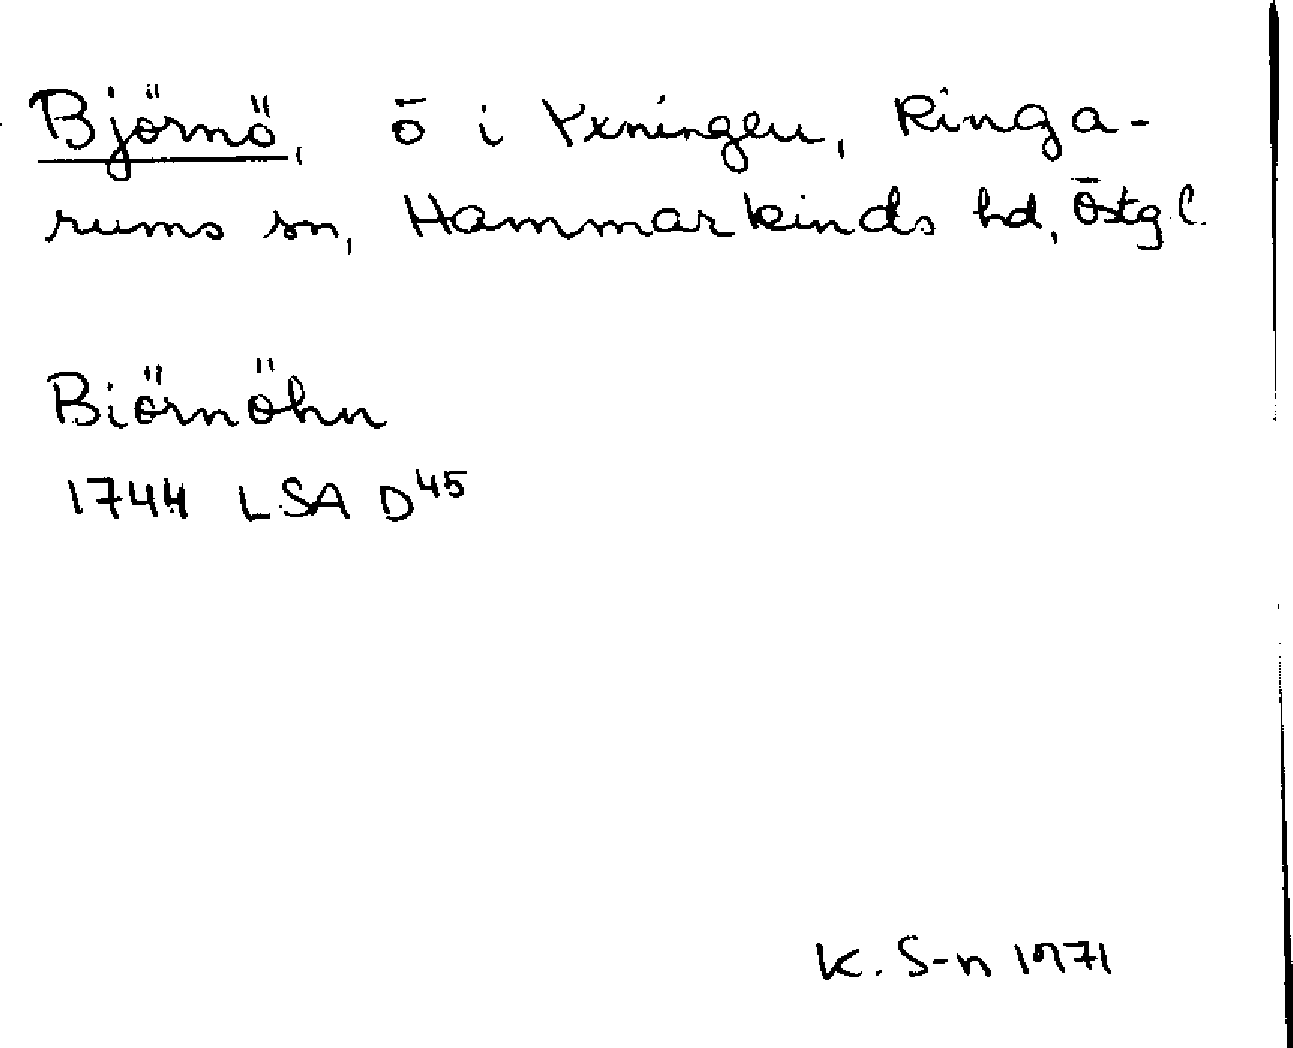 Björnö, ö i Yxningen, Ringa-
rums sn, Hammarkinds hd, Östgl.
Biörnöhn
1744 LSA D45
K. S-n 1971